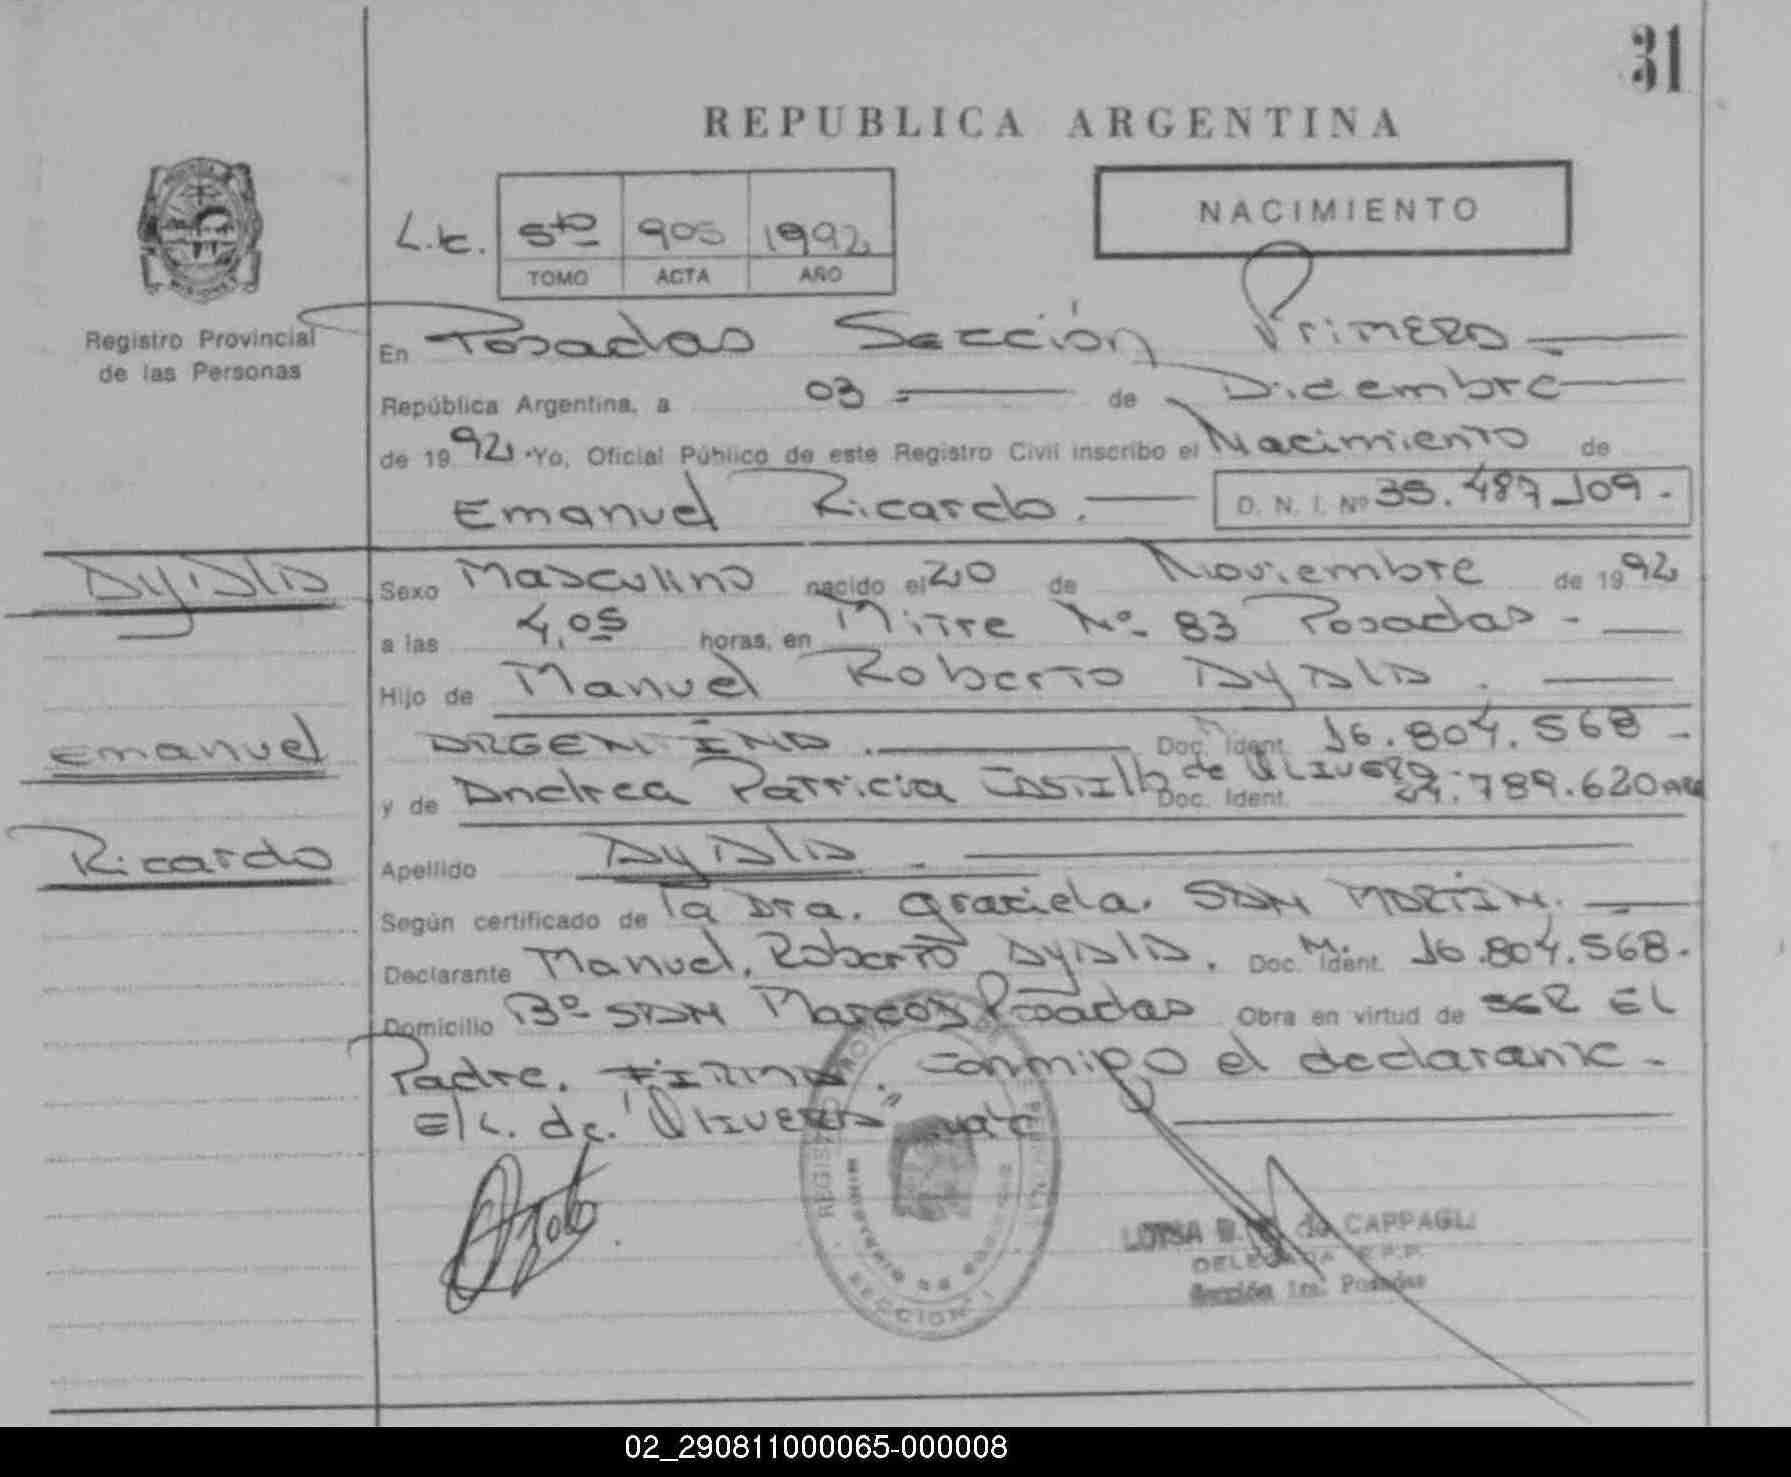 31
REPUBLICA ARGENTINA
NACIMIENTO
L.c. 5to 905 1992
TOMO ACTA AÑO
Registro Provincial
de las Personas
En Posadas Sección Primera
República Argentina, a 03 de Diciembre
de 1992 Yo, Oficial Público de este Registro Civil inscribo el Nacimiento de
Emanuel Ricardo. D. N. I. Nº 35.487.109.
AyAlA
Sexo Masculino nacido el 20 de Noviembre de 1992
a las 4,05 horas, en Mitre Nº 83 Posadas
Hijo de Manuel Roberto AyAlA.
Emanuel
ARGENTINA. Doc. Ident. 16.804.568
y de Andrea Patricia de OLIVERA Doc. Ident. 24.789.620
Ricardo
Apellido AyAlA
Según certificado de la Dra. Graciela. SAN MARTIN.
Declarante Manuel. Roberto AyAlA. Doc. M. Ident. 16.804.568.
Domicilio Bº SAN Marcos Posadas Obra en virtud de SER EL
Padre. FIRMA. conmigo el declarante
E/L. de. "OLIVERA" vale
DE CAPPAGLI
DELEGADA R.P.P.
Sección 1ra. Posadas
SECCION 1
02_290811000065-000008